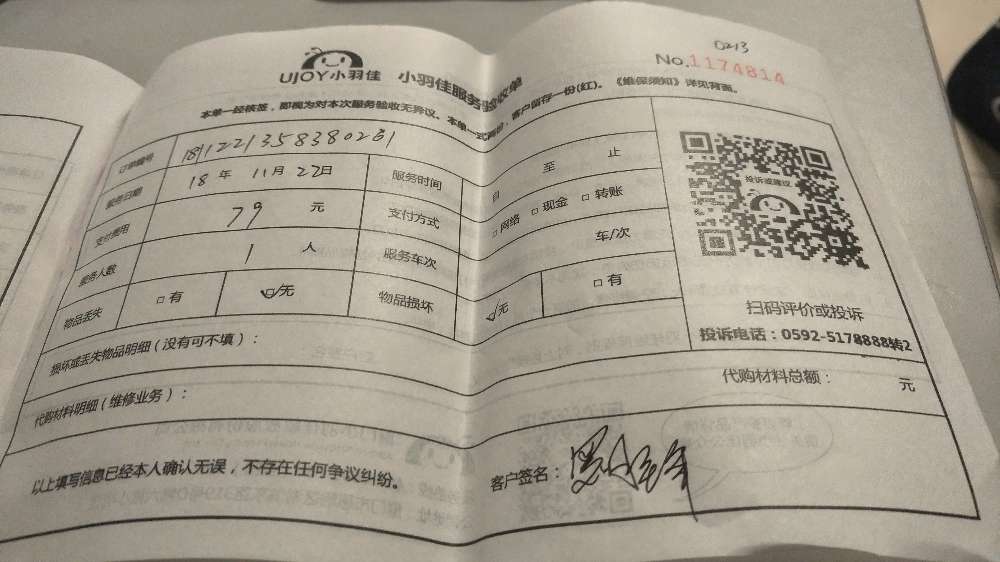 0213
UJOY小羽佳 小羽佳服务验收单 No.1174814
本单一经核签，即视为对本次服务验收无异议。本单一式两份，客户留存一份(红)。《维保须知》详见背面。
订单编号 1811221358380261
服务日期 18 年 11 月 22 日 服务时间 自 至 止
支付费用 79 元 支付方式 □网络 □现金 □转账
服务人数 1 人 服务车次 车/次
物品丢失 □有 ☑无 物品损坏 ☑无 □有
投诉或建议
扫码评价或投诉
投诉电话：0592-5178888转2
损坏或丢失物品明细（没有可不填）：
代购材料明细（维修业务）： 代购材料总额： 元
以上填写信息已经本人确认无误，不存在任何争议纠纷。 客户签名：